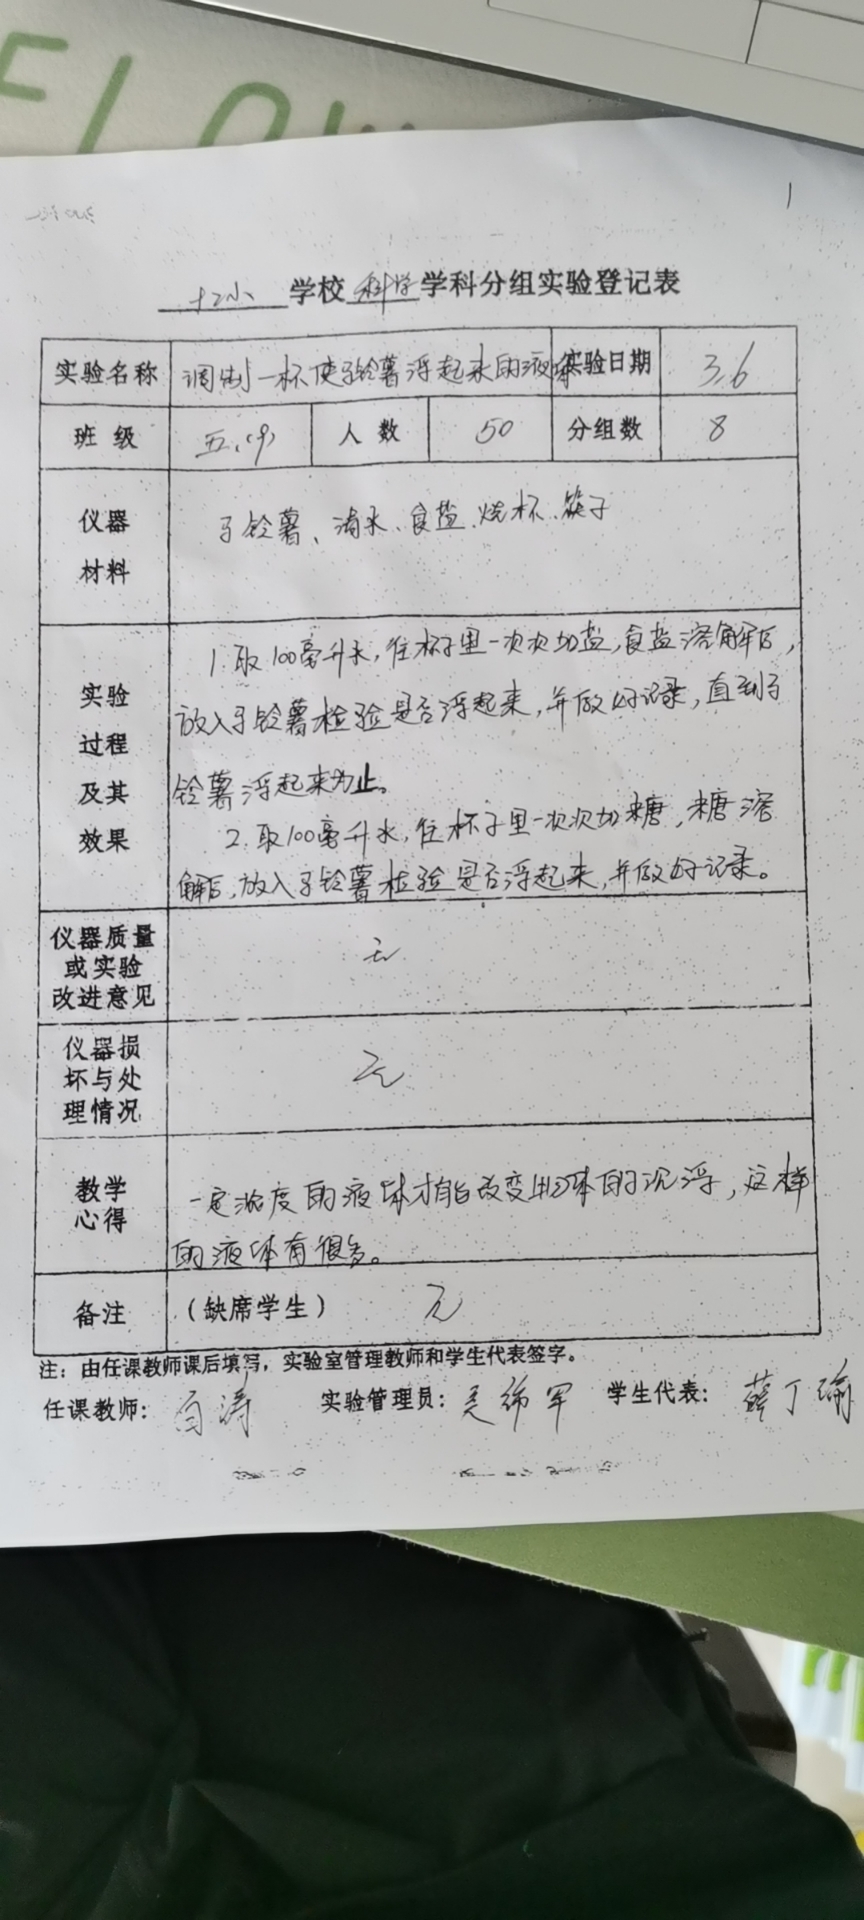 FLOW
1
十二小 学校 科学 学科分组实验登记表
实验名称 调制一杯使马铃薯浮起来的液体 实验日期 3.6
班级 五.(9) 人数 50 分组数 8
仪器
材料
马铃薯、清水、食盐、烧杯、筷子
实验
过程
及其
效果
1.取100毫升水,往杯子里一次次加盐,食盐溶解后,
放入马铃薯检验是否浮起来,并做好记录,直到马
铃薯浮起来为止。
2.取100毫升水,往杯子里一次次加糖,糖溶
解后,放入马铃薯检验是否浮起来,并做好记录。
仪器质量
或实验
改进意见
无
仪器损
坏与处
理情况
无
教学
心得
一定浓度的液体才能改变物体的沉浮,这样
的液体有很多。
备注 (缺席学生) 无
注:由任课教师课后填写,实验室管理教师和学生代表签字。
任课教师:白涛 实验管理员:吴绵军 学生代表:薛丁瑜